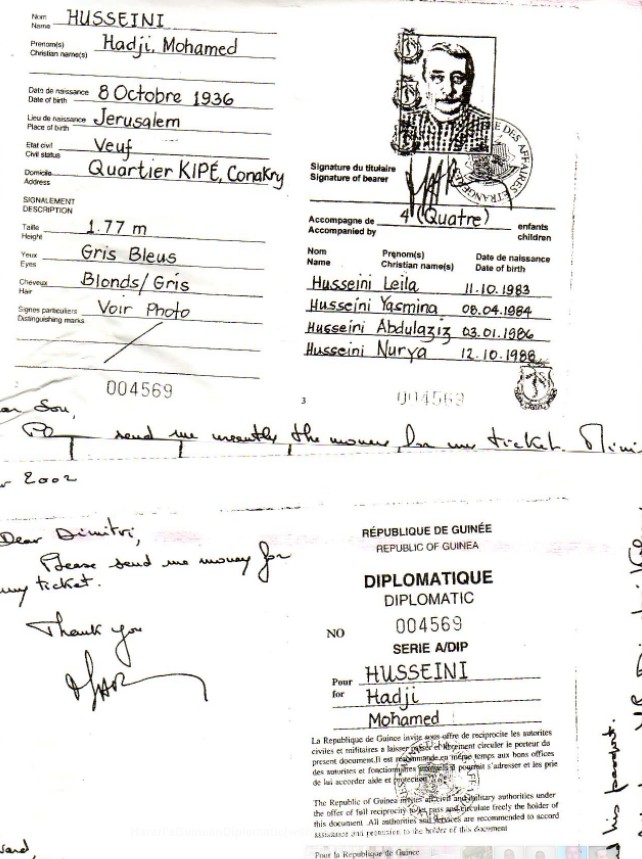 Nom
Name HUSSEINI
Prenom(s)
Christian name(s) Hadji, Mohamed
Date de naissance
Date of birth 8 Octobre 1936
Lieu de naissance
Place of birth Jerusalem
Etat civil
Civil status Veuf
Domicile
Address Quartier KIPÉ, Conakry
SIGNALEMENT
DESCRIPTION
Taille
Height 1.77 m
Yeux
Eyes Gris Bleus
Cheveux
Hair Blonds/Gris
Signes particuliers
Distinguishing marks Voir Photo
004569
DES AFFAIRES ETRANGERES
Signature du titulaire
Signature of bearer
Accompagne de 4 (Quatre) enfants
Accompanied by children
Nom Prenom(s) Date de naissance
Name Christian name(s) Date of birth
Husseini Leila 11.10.1983
Husseini Yasmina 08.04.1984
Husseini Abdulaziz 03.01.1986
Husseini Nurya 12.10.1988
3
004569
Son,
send me the money for my ticket.
2002
Dear Dimitri,
Please send me money for
my ticket.
Thank you
RÉPUBLIQUE DE GUINÉE
REPUBLIC OF GUINEA
DIPLOMATIQUE
DIPLOMATIC
NO 004569
SERIE A/DIP
Pour HUSSEINI
for Hadji
Mohamed
La Republique de Guinee invite sous offre de reciprocite les autorites
civiles et militaires a laisser passer et librement circuler le porteur du
present document.Il est recommande en même temps aux bons offices
des autorites et fonctionnaires auxquels il pourrait s'adresser et les prie
de lui accorder aide et protection
The Republic of Guinea invites all civil and military authorities under
the offer of full reciprocity to let pass and circulate freely the holder of
this document. All authorities and services are recommended to accord
assistance and protection to the holder of this document
Pour la Republique de Guinee
his passport.